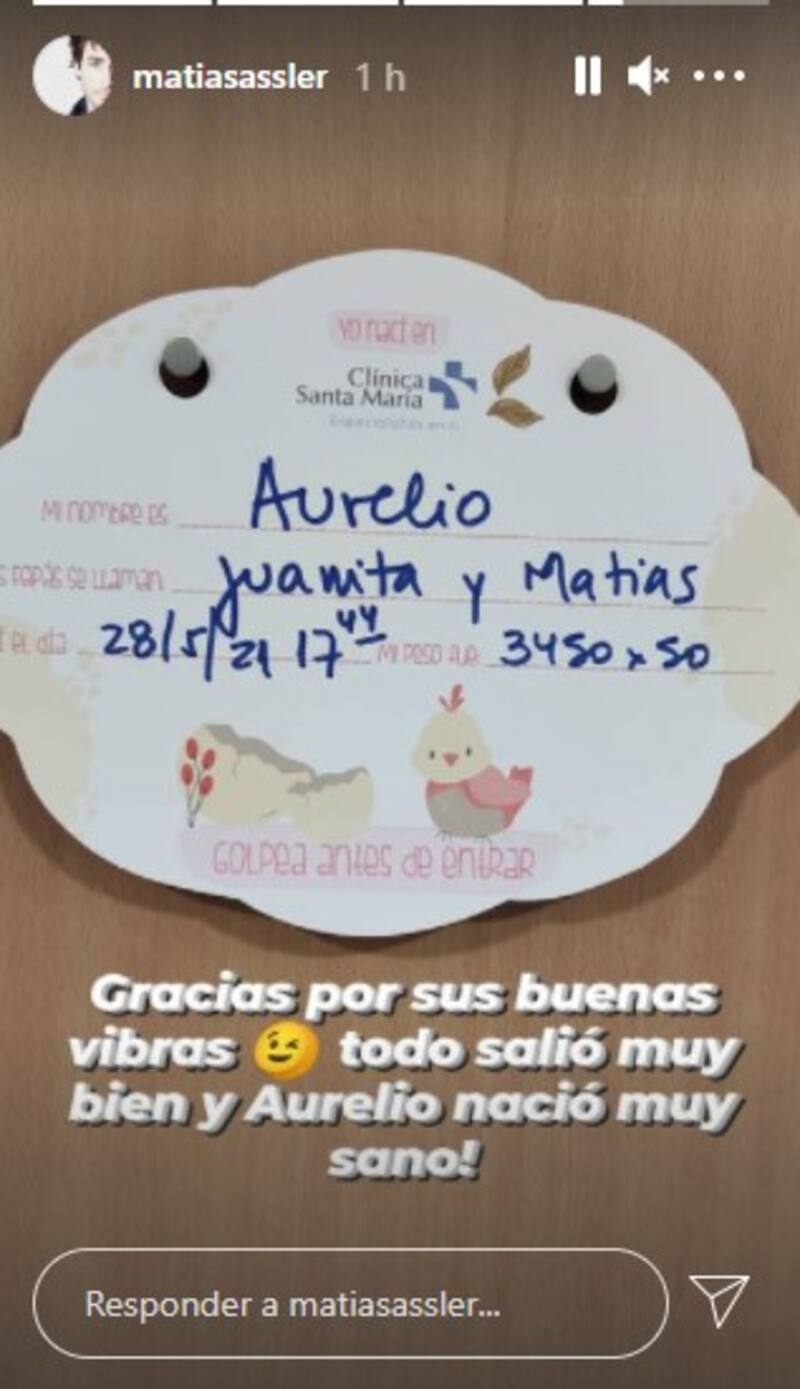 matiasassler 1 h
yo nací en
Clínica
Santa María
Mi nombre es Aurelio
s papás se llaman Juanita y Matias
el día 28/5/21 17 44 Mi peso fue 3450 x 50
Golpea antes de entrar
Gracias por sus buenas
vibras 😉 todo salió muy
bien y Aurelio nació muy
sano!
Responder a matiasassler...